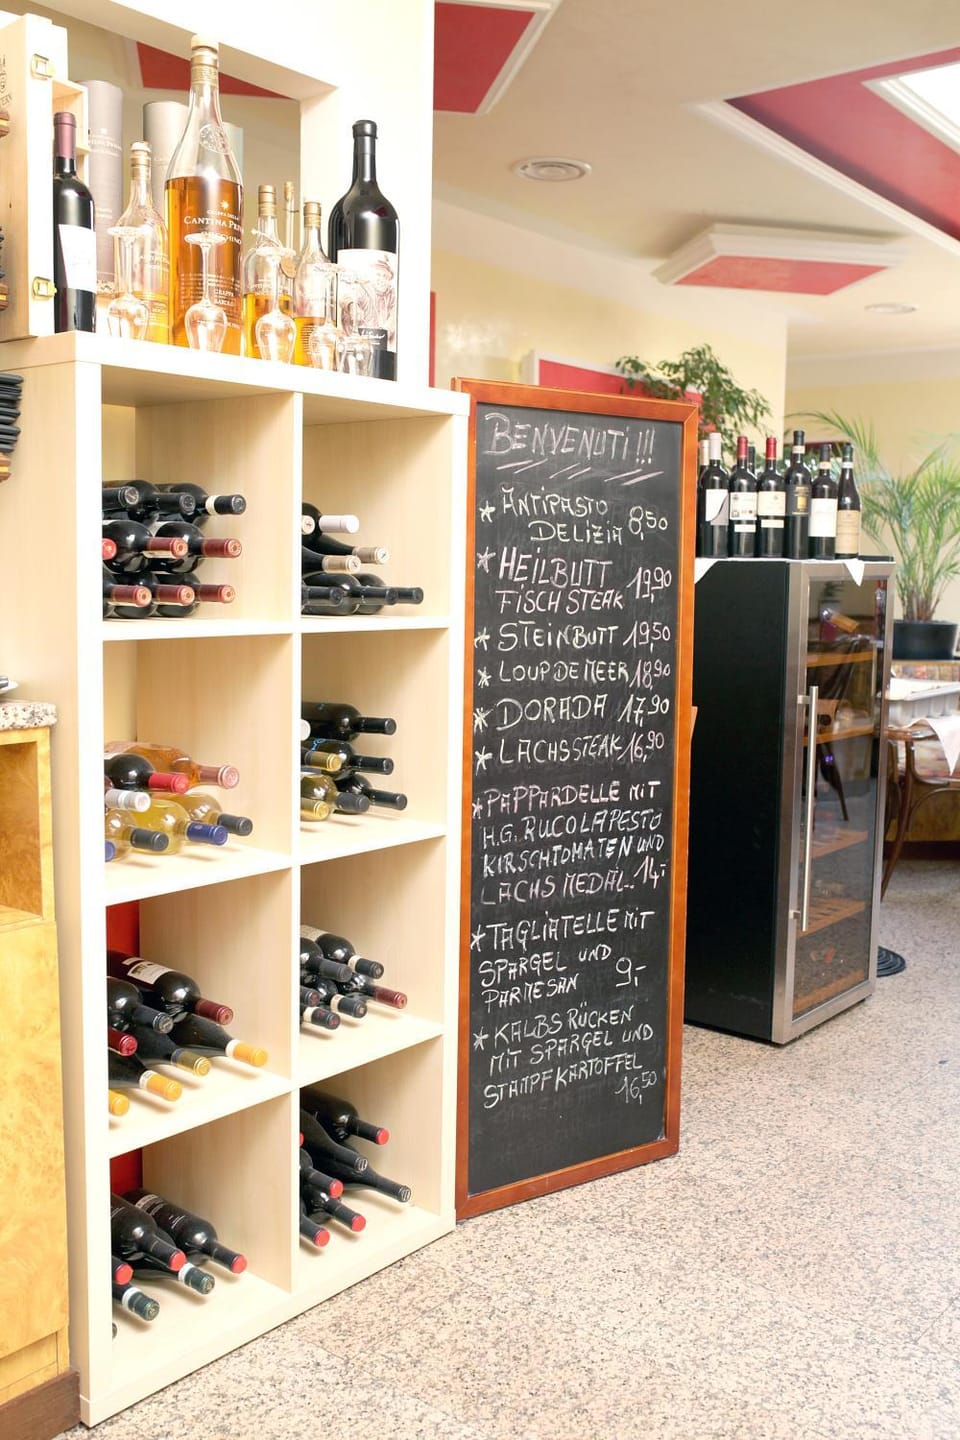 CANTINA PRIVATA
GRAPPA
BAROLO
BENVENUTI!!!
* ANTIPASTO
DELIZIA 8,50
* HEILBUTT
FISCHSTEAK 19,90
* STEINBUTT 19,50
* LOUP DE MEER 18,90
* DORADA 17,90
* LACHSSTEAK 16,90
* PAPPARDELLE MIT
H.G. RUCOLAPESTO
KIRSCHTOMATEN UND
LACHS MEDAL.. 14,-
* TAGLIATELLE MIT
SPARGEL UND
PARMESAN 9,-
* KALBSRÜCKEN
MIT SPARGEL UND
STAMPFKARTOFFEL
16,50